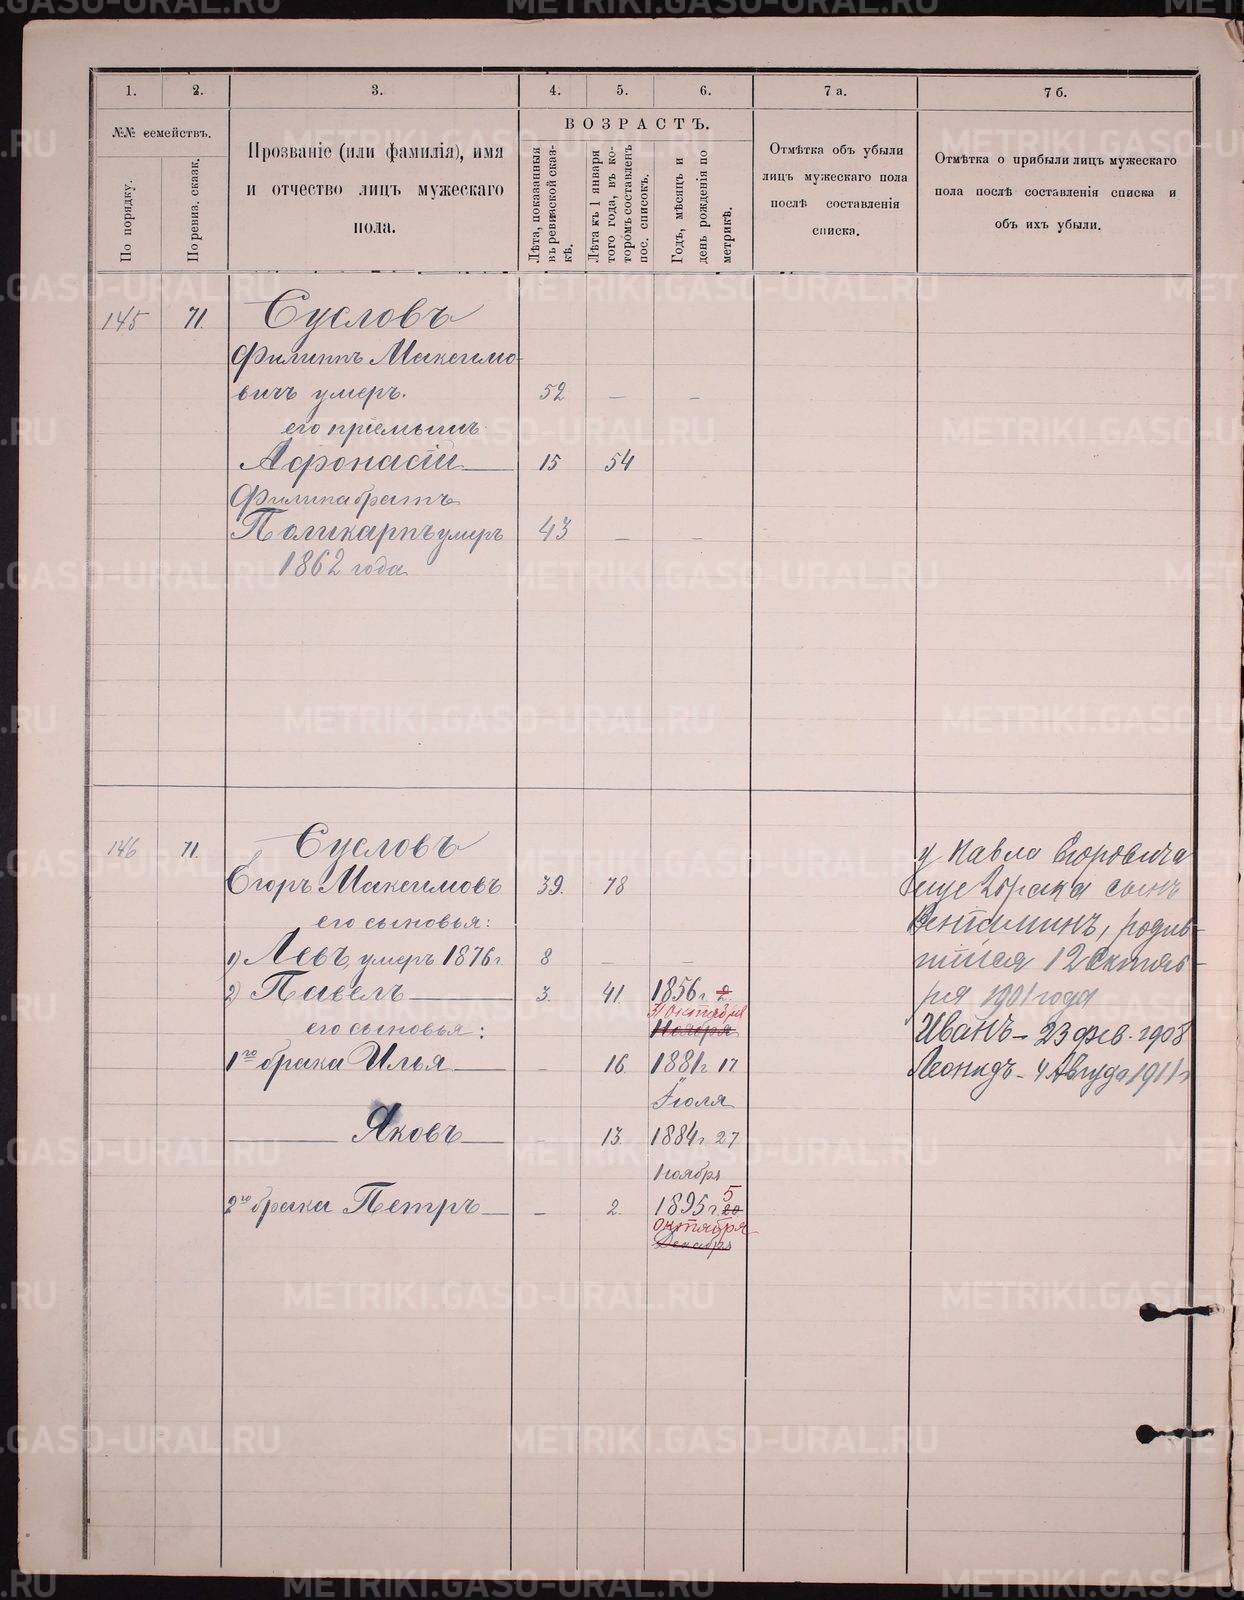 1.
2.
3.
4.
5.
6.
7 а.
7 б.
№№ семействъ.
По порядку.
По ревиз. сказк.
Прозваніе (или фамилія), имя
и отчество лицъ мужескаго
пола.
ВОЗРАСТЪ.
Лѣта, показанныя
въ ревизской сказ-
кѣ.
Лѣта къ 1 января
того года, въ ко-
торомъ составленъ
пос. списокъ.
Годъ, мѣсяцъ и
день рожденія по
метрикѣ.
Отмѣтка объ убыли
лицъ мужескаго пола
послѣ составленія
списка.
Отмѣтка о прибыли лицъ мужескаго
пола послѣ составленія списка и
объ ихъ убыли.
145 71. Сусловъ
Филиппъ Максимо-
вичъ умеръ. 52 — —
его пріемышъ
Афонасій 15 54
Филипа братъ
Поликарпъ умеръ 43 — —
1862 года
146 71. Сусловъ
Егоръ Максимовъ 39. 78
его сыновья:
1) Левъ, умеръ 1876 г. 8 — —
2) Павелъ 3. 41. 1856 г. 2
31 октября
Ноября
его сыновья:
1го брака Илья — 16. 1881 г. 17
Іюля
Яковъ — 13. 1884 г. 27
Ноября
2го брака Петръ — 2. 1895 г. 5 20
октября
Декабря
у Павла Егоровича
еще 2 брака сынъ
Веніаминъ, родив-
шійся 12 октяб-
ря 1901 года
Иванъ - 23 фев. 1908
Леонидъ - 4 Августа 1911 г.
METRIKI.GASO-URAL.RU